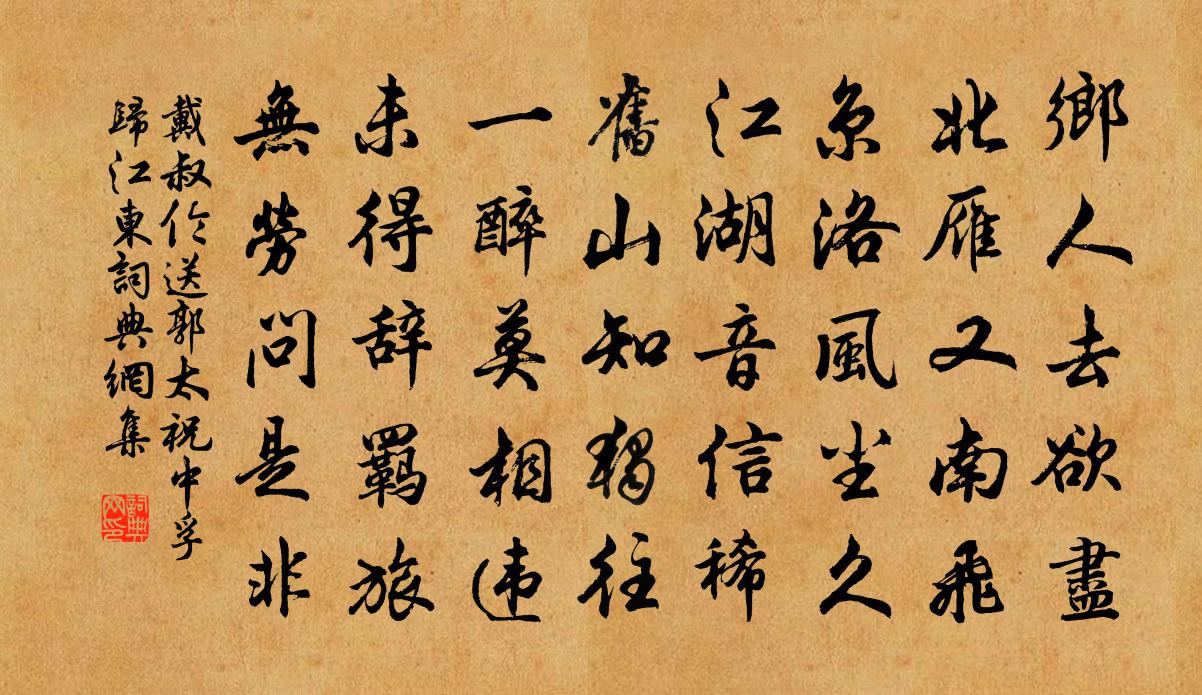 鄉人去欲盡
北雁又南飛
京洛風尘久
江湖音信稀
舊山知獨往
一醉莫相违
未得辞羁旅
無勞問是非
戴叔伦送郭太祝中孚
歸江東詞典網集
詞典网印